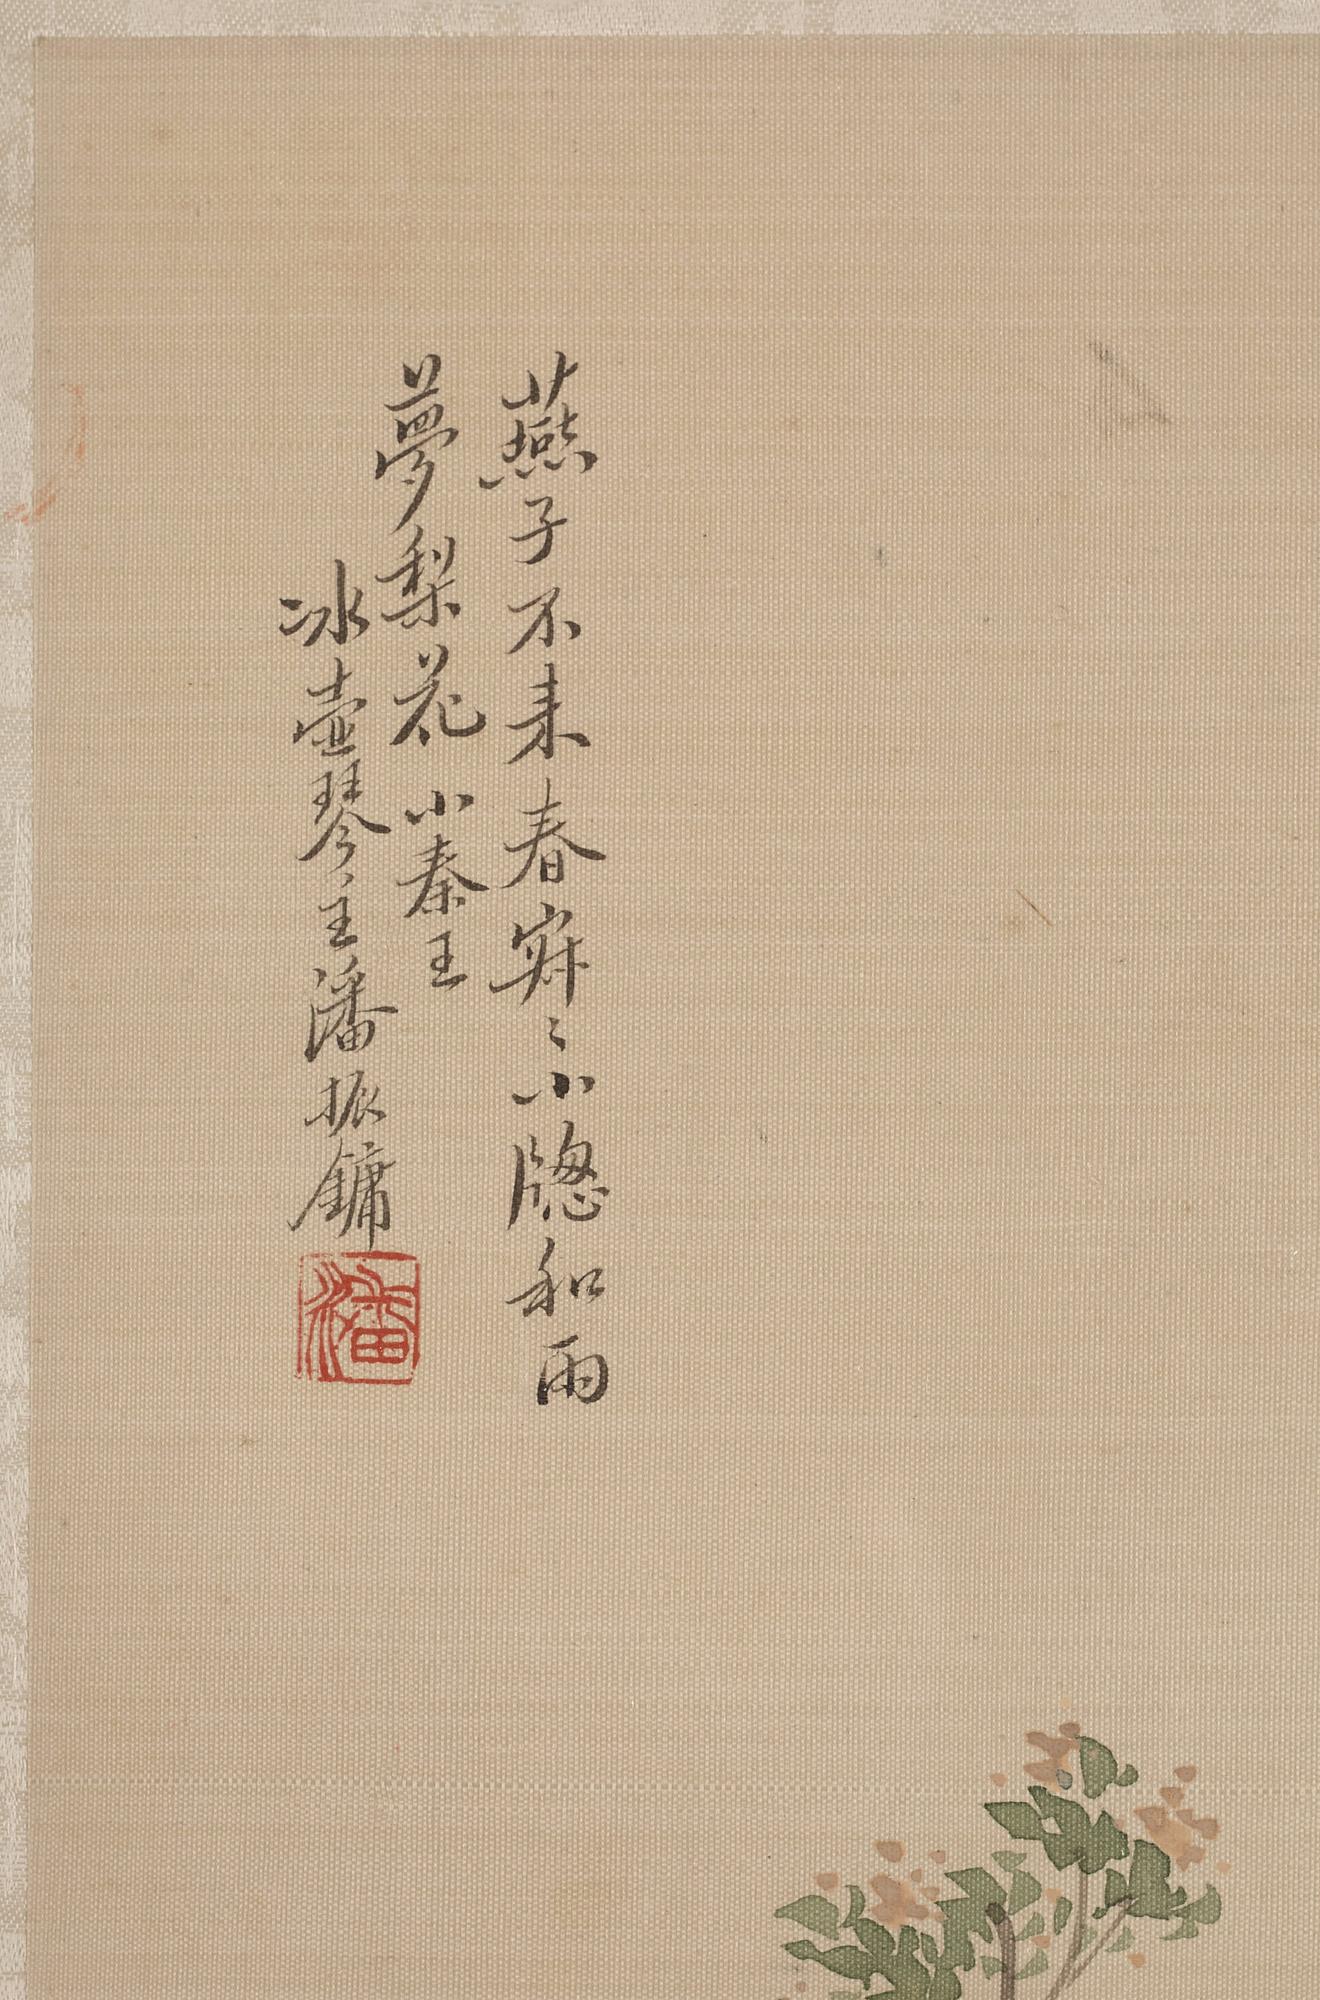 燕子不来春寂〻小窻和雨
夢梨花 小秦王
冰壺琴主潘振鏞
潘